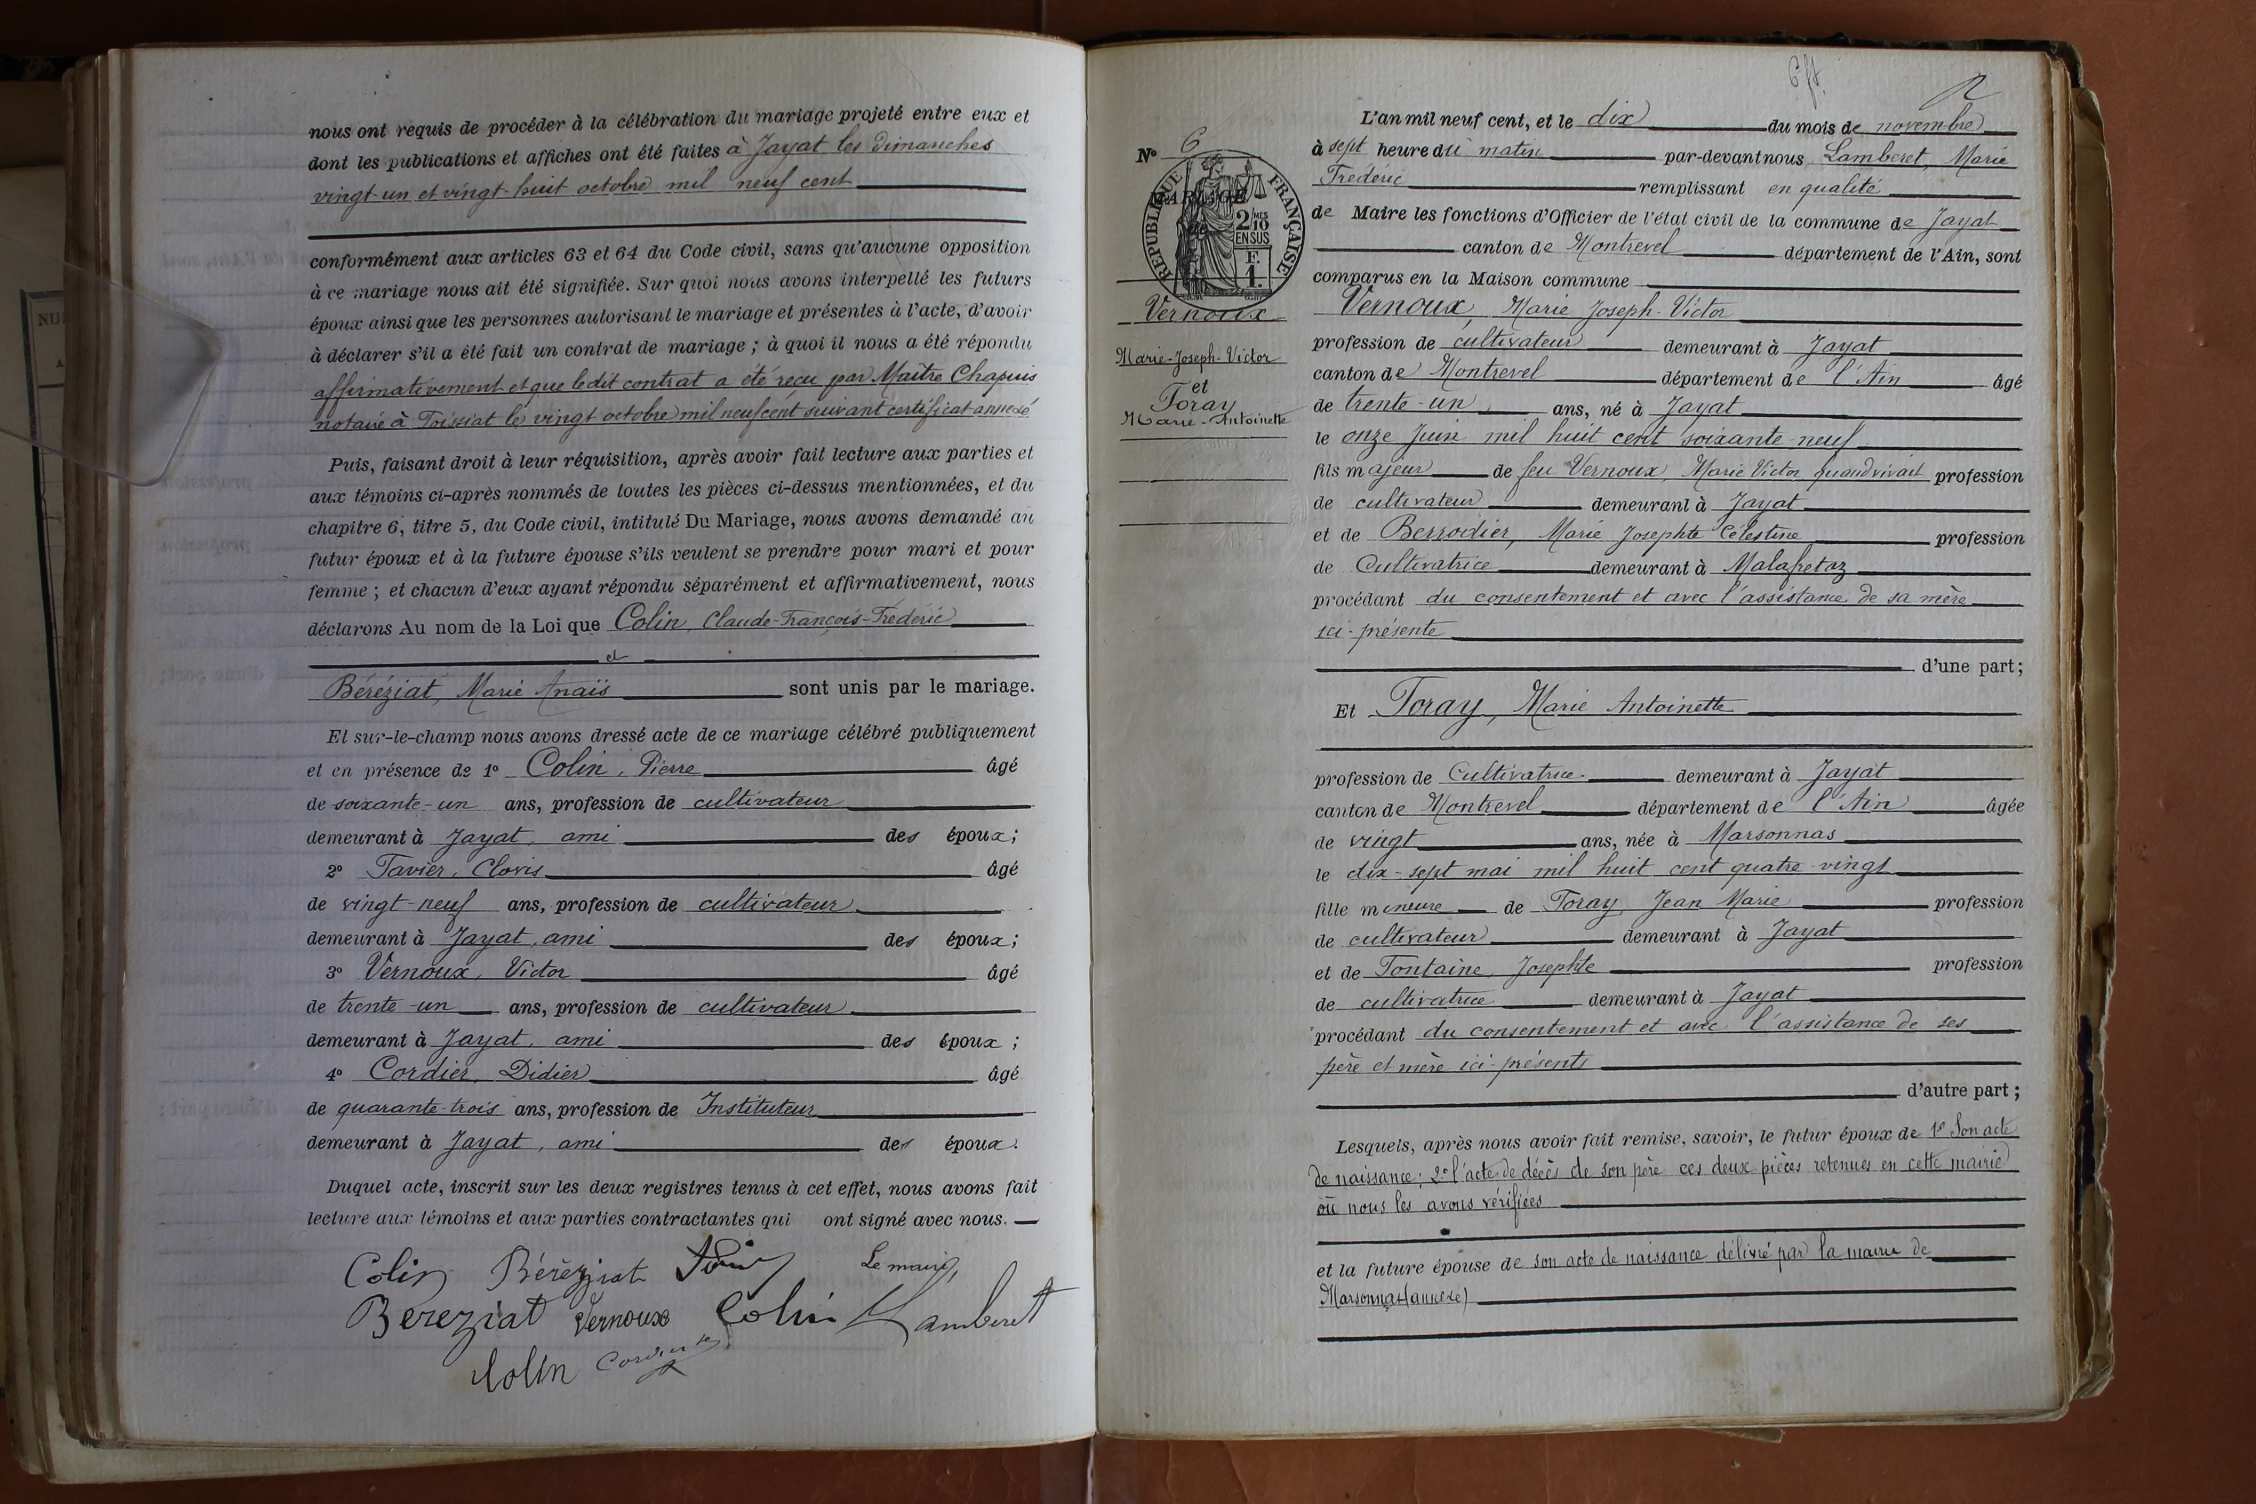 nous ont requis de procéder à la célébration du mariage projeté entre eux et
dont les publications et affiches ont été faites à Jayat les dimanches
vingt-un et vingt-huit octobre mil neuf cent
conformément aux articles 63 et 64 du Code civil, sans qu'aucune opposition
à ce mariage nous ait été signifiée. Sur quoi nous avons interpellé les futurs
époux ainsi que les personnes autorisant le mariage et présentes à l'acte, d'avoir
à déclarer s'il a été fait un contrat de mariage ; à quoi il nous a été répondu
affirmativement et que ledit contrat a été reçu par Maître Chapuis
notaire à Foissiat le vingt octobre mil neuf cent suivant certificat annexé
Puis, faisant droit à leur réquisition, après avoir fait lecture aux parties et
aux témoins ci-après nommés de toutes les pièces ci-dessus mentionnées, et du
chapitre 6, titre 5, du Code civil, intitulé Du Mariage, nous avons demandé au
futur époux et à la future épouse s'ils veulent se prendre pour mari et pour
femme ; et chacun d'eux ayant répondu séparément et affirmativement, nous
déclarons Au nom de la Loi que Colin, Claude-François-Frédéric
et
Béréziat, Marie Anaïs sont unis par le mariage.
Et sur-le-champ nous avons dressé acte de ce mariage célébré publiquement
et en présence de 1° Colin, Pierre âgé
de soixante-un ans, profession de cultivateur
demeurant à Jayat, ami des époux ;
2° Favier, Clovis âgé
de vingt-neuf ans, profession de cultivateur
demeurant à Jayat, ami des époux ;
3° Vernoux, Victor âgé
de trente-un ans, profession de cultivateur
demeurant à Jayat, ami des époux ;
4° Cordier, Didier âgé
de quarante-trois ans, profession de Instituteur
demeurant à Jayat, ami des époux.
Duquel acte, inscrit sur les deux registres tenus à cet effet, nous avons fait
lecture aux témoins et aux parties contractantes qui ont signé avec nous.
Colin Béréziat Le maire,
Bereziat Vernoux Colin Lamberet
Colin Cordier
N° 6
MARIAGE
RÉPUBLIQUE FRANÇAISE
2/10 MES EN SUS
F. 1.
Vernoux
Marie-Joseph-Victor
et
Foray
Marie-Antoinette
L'an mil neuf cent, et le dix du mois de novembre
à sept heure du matin par-devant nous Lamberet, Marie
Fréderic remplissant en qualité
de Maire les fonctions d'Officier de l'état civil de la commune de Jayat
canton de Montrevel département de l'Ain, sont
comparus en la Maison commune
Vernoux, Marie Joseph-Victor
profession de cultivateur demeurant à Jayat
canton de Montrevel département de l'Ain âgé
de trente-un ans, né à Jayat
le onze Juin mil huit cent soixante-neuf
fils majeur de feu Vernoux, Marie Victor quand vivait profession
de cultivateur demeurant à Jayat
et de Berrodier, Marie Josephte Célestine profession
de Cultivatrice demeurant à Malafretaz
procédant du consentement et avec l'assistance de sa mère
ici-présente
d'une part ;
Et Foray, Marie Antoinette
profession de Cultivatrice demeurant à Jayat
canton de Montrevel département de l'Ain âgée
de vingt ans, née à Marsonnas
le dix-sept mai mil huit cent quatre-vingt
fille mineure de Foray, Jean Marie profession
de cultivateur demeurant à Jayat
et de Fontaine, Josephte profession
de cultivatrice demeurant à Jayat
procédant du consentement et avec l'assistance de ses
père et mère ici-présents
d'autre part ;
Lesquels, après nous avoir fait remise, savoir, le futur époux de 1° Son acte
de naissance ; 2° l'acte de décès de son père ces deux pièces retenues en cette mairie
où nous les avons vérifiées
et la future épouse de son acte de naissance délivré par la mairie de
Marsonnas (annexé)